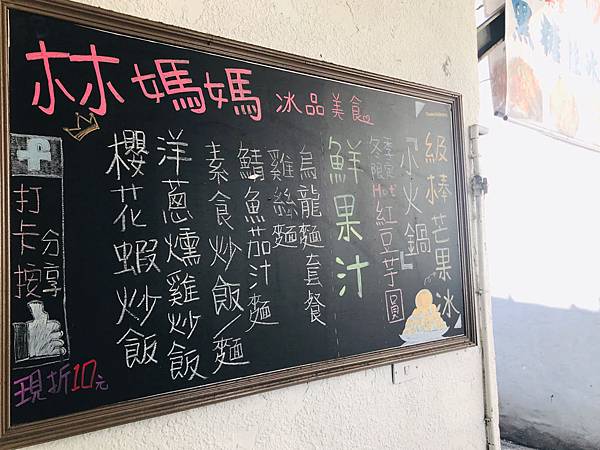 林媽媽 冰品美食
級棒芒果冰
『小火鍋』
冬季限定 Hot 紅豆芋圓
鮮果汁
烏龍麵套餐
雞絲麵
鯖魚茄汁麵
素食炒飯/麵
洋蔥燻雞炒飯
櫻花蝦炒飯
f
打卡按
分享
現折10元